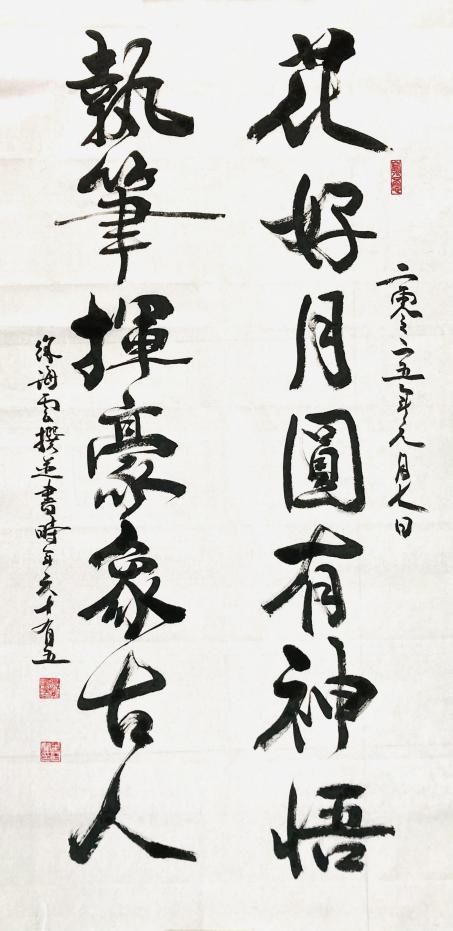 二零二五年元月七日
花好月圓有神悟
執筆揮豪象古人
徐海雲撰並書時年六十有五